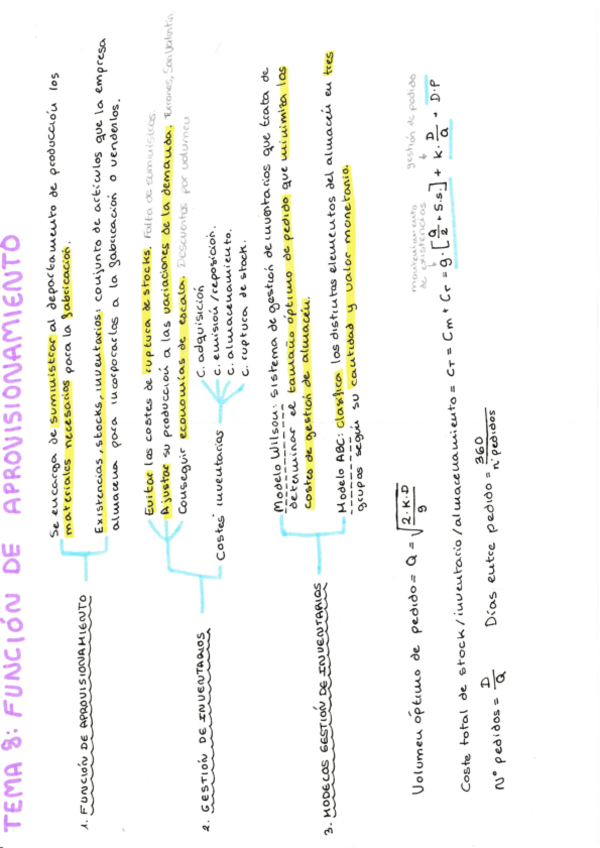 TEMA 8: FUNCIÓN DE APROVISIONAMIENTO
1. FUNCIÓN DE APROVISIONAMIENTO
Se encarga de suministrar al departamento de producción los
materiales necesarios para la fabricación.
Existencias, stocks, inventarios: conjunto de artículos que la empresa
almacena para incorporarlos a la fabricación o venderlos.
2. GESTIÓN DE INVENTARIOS
Evitar los costes de ruptura de stocks. Falta de suministros.
Ajustar su producción a las variaciones de la demanda. Turrones, San Valentín
Conseguir economías de escala. Descuentos por volumen
Costes inventarios
C. adquisición
C. emisión/reposición.
C. almacenamiento.
C. ruptura de stock.
3. MODELOS GESTIÓN DE INVENTARIOS
Modelo Wilson: sistema de gestión de inventarios que trata de
determinar el tamaño óptimo de pedido que minimiza los
costes de gestión de almacén.
Modelo ABC: clasifica los distintos elementos del almacén en tres
grupos según su cantidad y valor monetario.
Volumen óptimo de pedido = Q = √(2·K·D/g)
mantenimiento de existencias
gestión de pedido
Coste total de stock/inventario/almacenamiento = CT = Cm + Cr = g·[Q/2 + s.s.] + K·D/Q + D·P
Nº pedidos = D/Q Días entre pedido = 360/nº pedidos